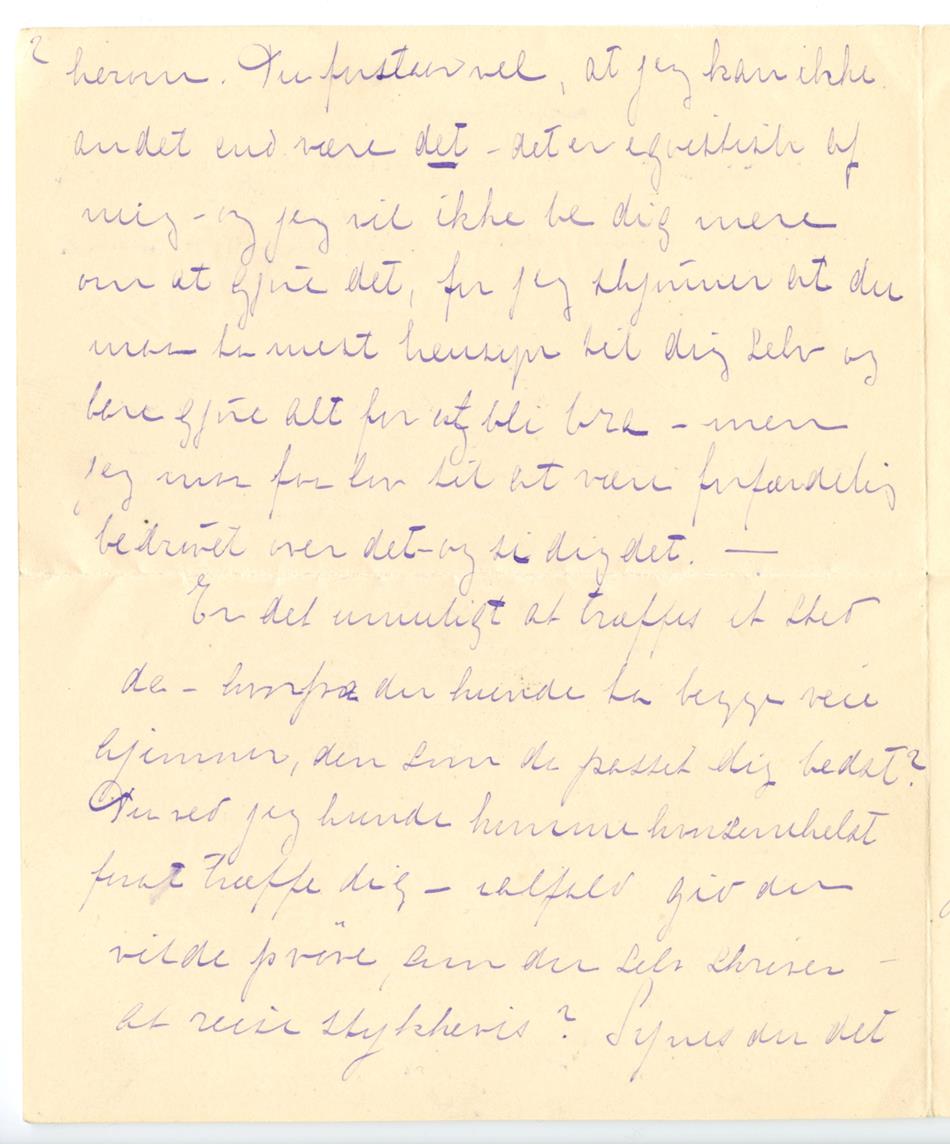 2
herom. Du forstaar vel, at jeg kan ikke
andet end være det - det er egoistisk af
mig - og jeg vil ikke be dig mere
om at gjøre det, for jeg skjønner at du
maa ta mest hensyn til dig selv og
bare gjøre alt for at bli bra - men
jeg maa faa lov til at være forfærdelig
bedrøvet over det - og si dig det. —
Er det umuligt at træffes et sted
da - hvorfra du kunde ta begge veie
hjemmover, den som da passet dig bedst?
Du ved jeg kunde komme hvorsomhelst
for at træffe dig - ialfald gid du
vilde prøve, som du selv skriver -
at reise stykkevis? Synes du det